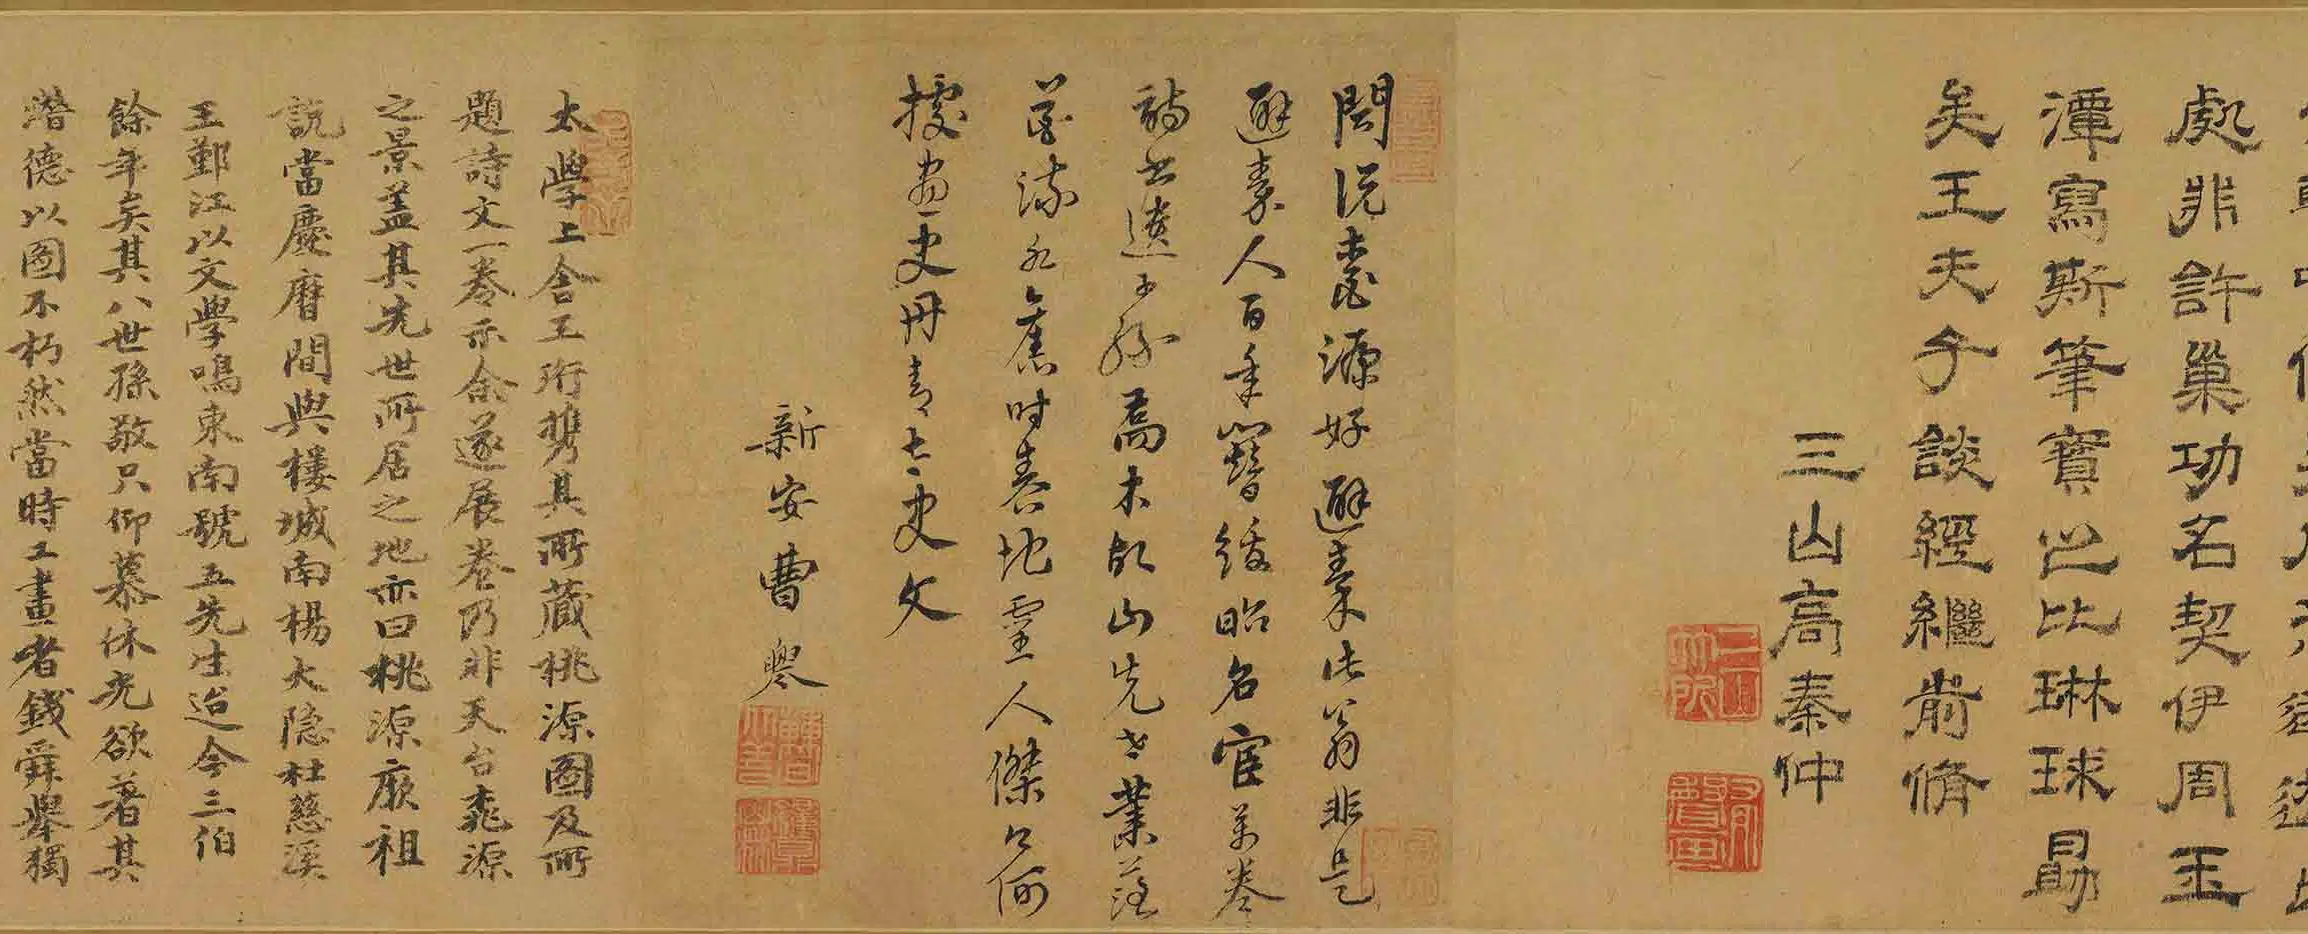 處非許巢功名契伊周玉
潭寫斯筆寶之比琳球勗
矣王夫子談經繼前脩
三山高秦仲
聞說桃源好避秦此翁非是
避秦人百年簪綬昭名宦萬卷
詩書遺子孫喬木故山先世業落
花流水舊時春地靈人傑公何
據畫史冊青七史文
新安曹
太學上舍王珩携其所藏桃源圖及所
題詩文一卷示余遂展卷乃非天台桃源
之景盖其先世所居之地亦曰桃源厥祖
說當慶曆間與樓城南楊大隐杜慈溪
王鄞江以文學鳴東南號五先生迨今三伯
餘年矣其八世孫敬只仰慕休光欲著其
潜德以圖不朽然當時工畫者錢舜舉獨